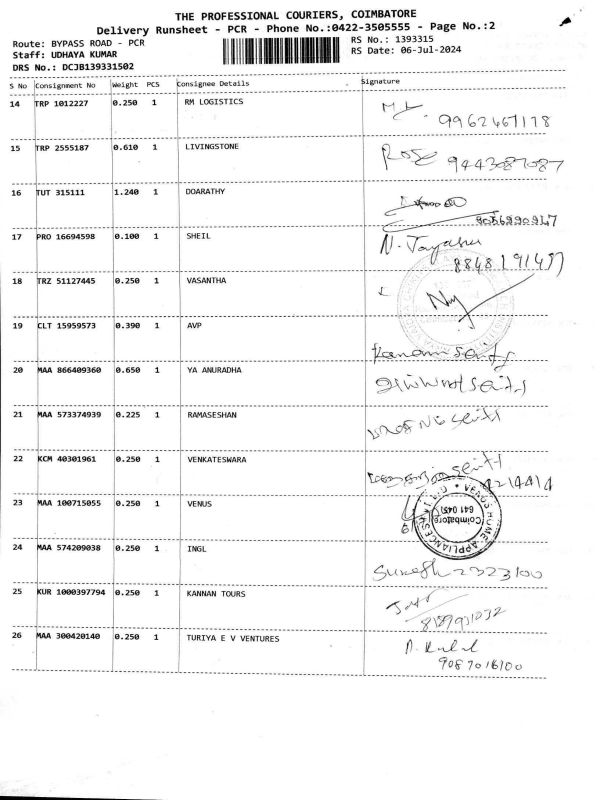 THE PROFESSIONAL COURIERS, COIMBATORE
Delivery Runsheet - PCR - Phone No.:0422-3505555 - Page No.:2
Route: BYPASS ROAD - PCR
Staff: UDHAYA KUMAR
DRS No.: DCJB139331502
RS No.: 1393315
RS Date: 06-Jul-2024
S No Consignment No Weight PCS Consignee Details Signature
14 TRP 1012227 0.250 1 RM LOGISTICS
9962467178
15 TRP 2555187 0.610 1 LIVINGSTONE Rose
9443087087
16 TUT 315111 1.240 1 DOARATHY
9056990947
17 PRO 16694598 0.100 1 SHEIL
18 TRZ 51127445 0.250 1 VASANTHA
19 CLT 15959573 0.390 1 AVP
20 MAA 866409360 0.650 1 YA ANURADHA
21 MAA 573374939 0.225 1 RAMASESHAN
22 KCM 40301961 0.250 1 VENKATESWARA
23 MAA 100715055 0.250 1 VENUS
VENUS HOME APPLIANCES
Coimbatore
641 045
24 MAA 574209038 0.250 1 INGL
Suresh 2323100
25 KUR 1000397794 0.250 1 KANNAN TOURS
26 MAA 300420140 0.250 1 TURIYA E V VENTURES
9087016100